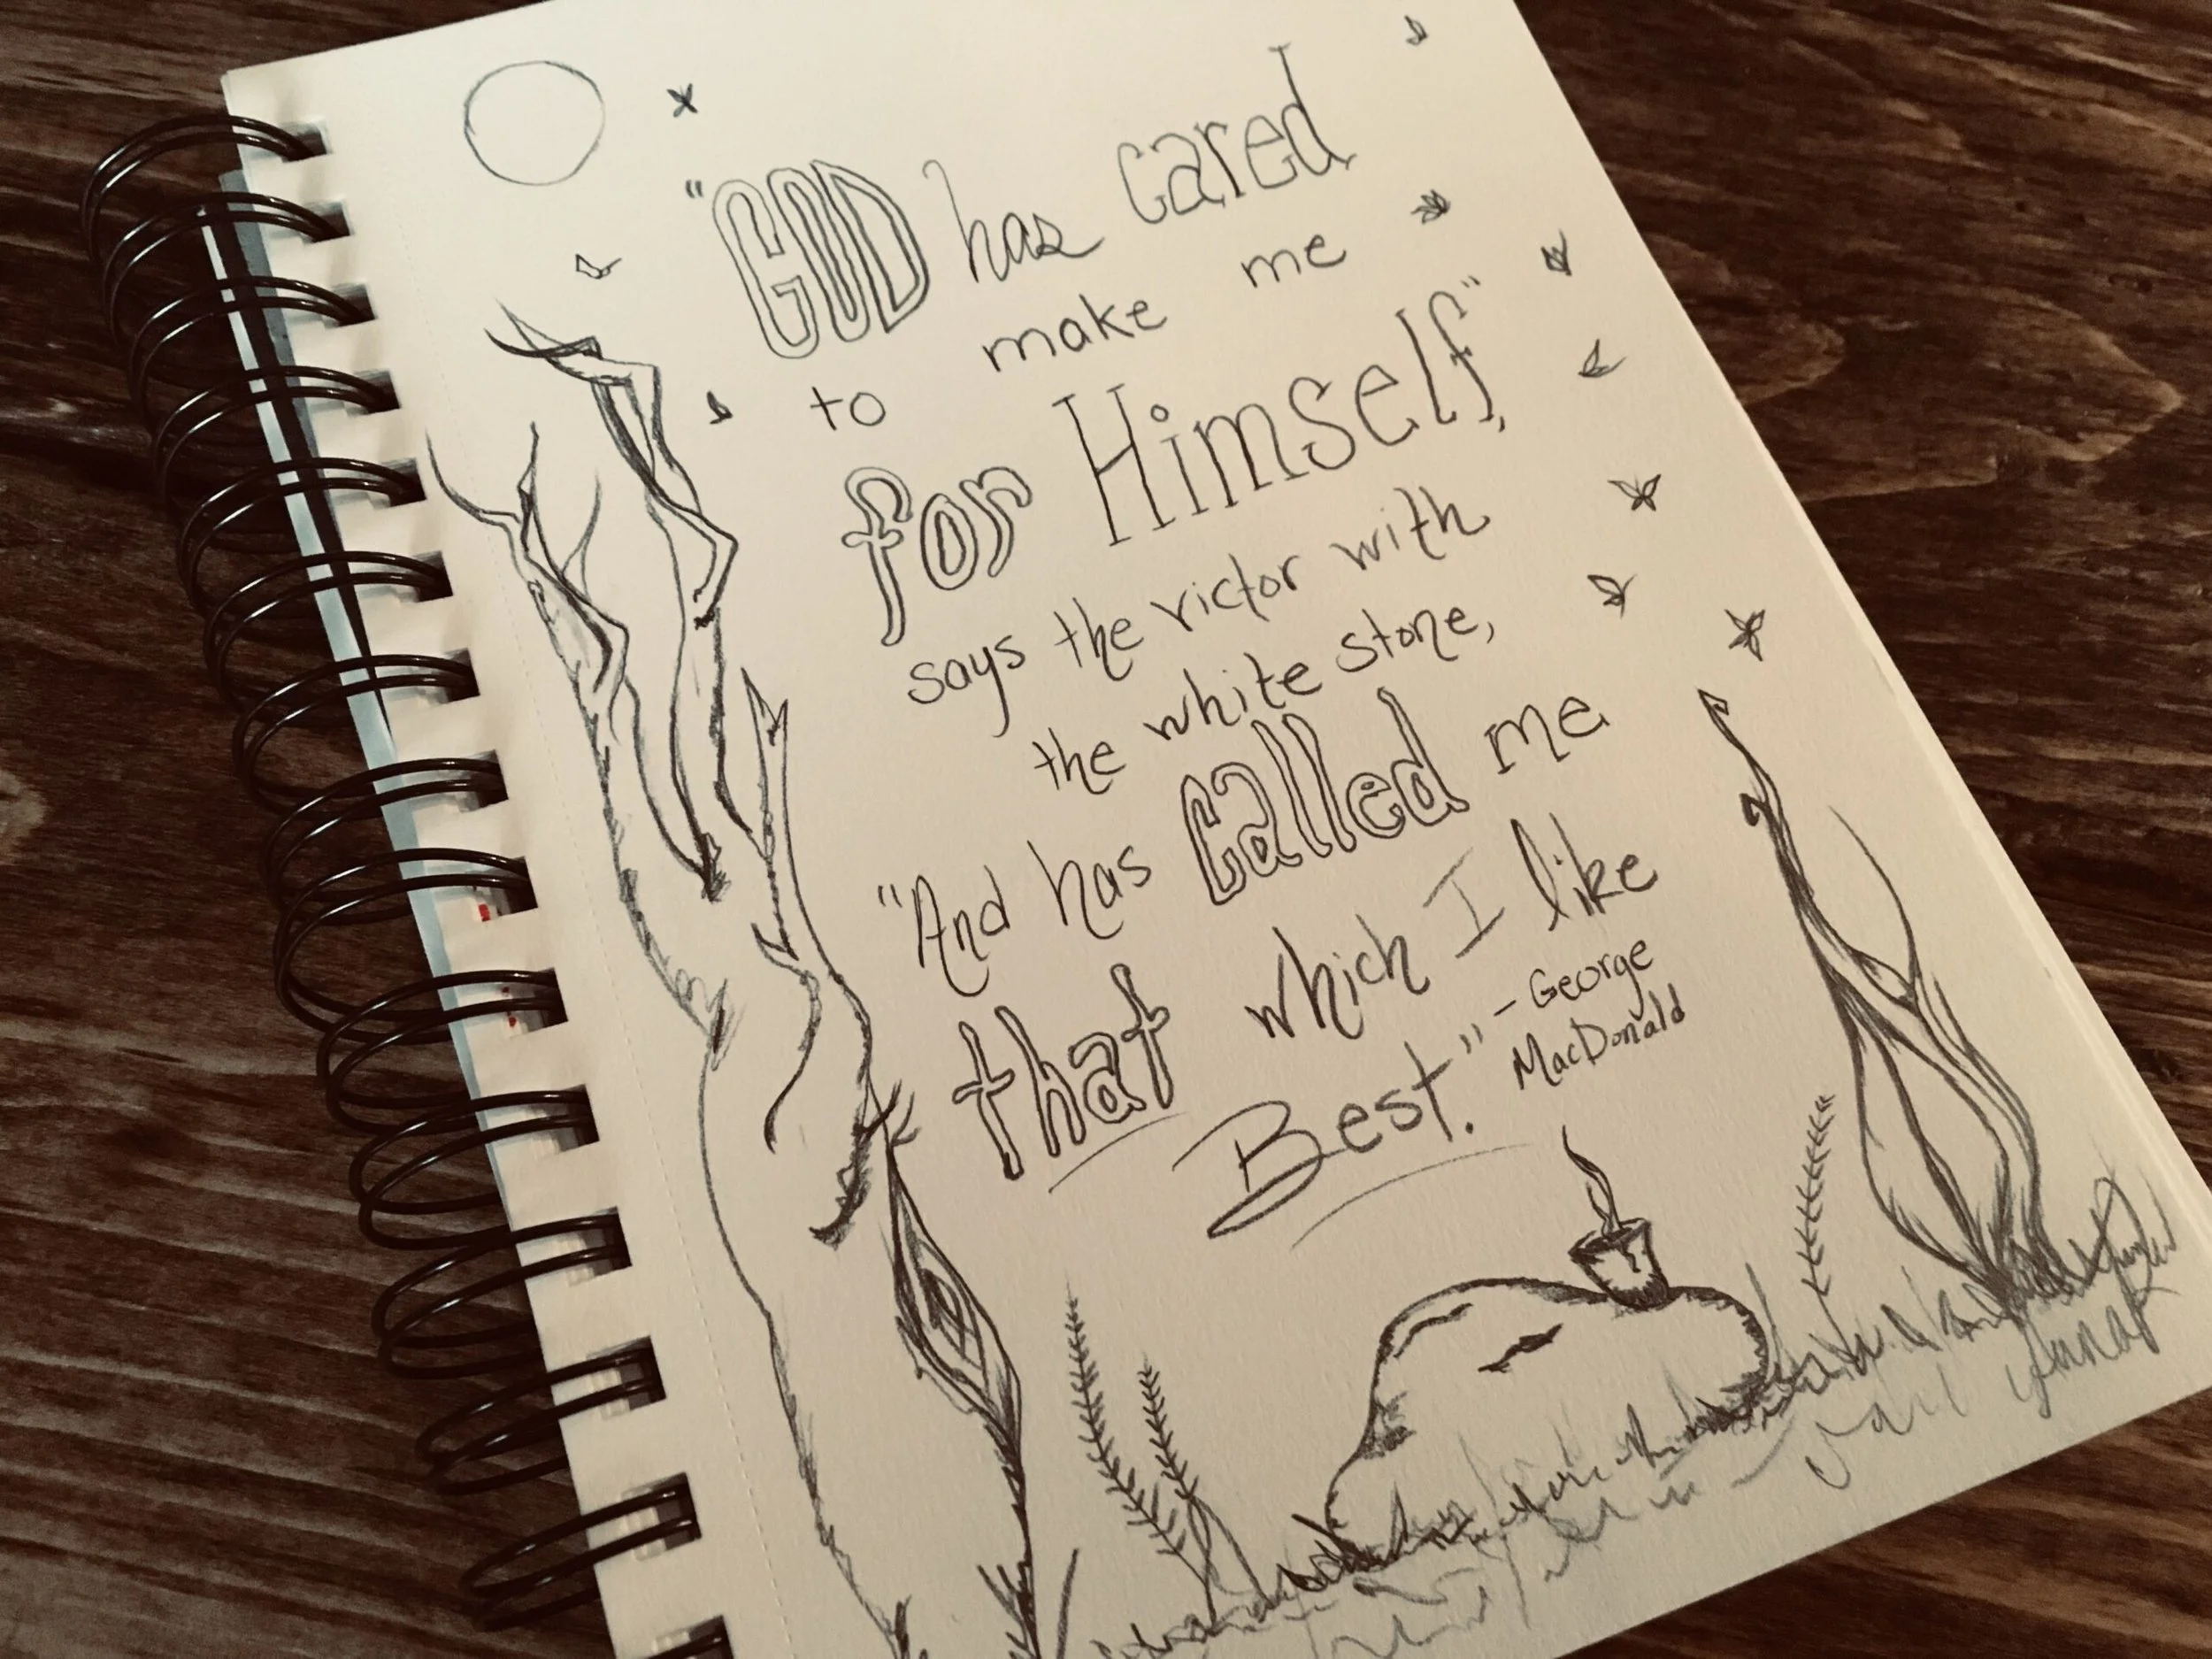 "GOD has cared
to make me
for Himself,"
says the victor with
the white stone,
"And has called me
that which I like
Best." - George
MacDonald